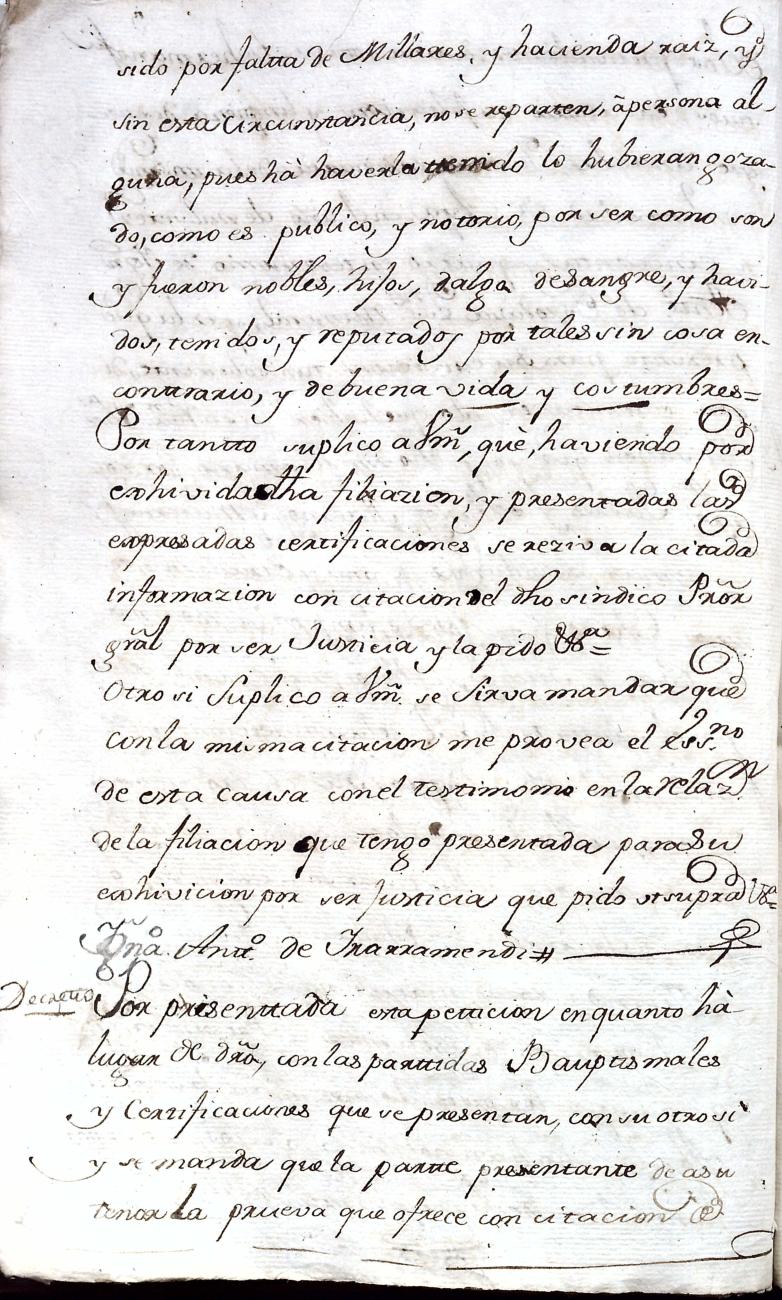 sido por faltta de Millares, y hacienda raiz, y
sin esta circunstancia, no se reparten, à persona al-
guna, pues hà haverla tenido lo hubieran goza-
do, como es publico, y notorio, por ser como son
y fueron nobles, hijos, dalgo de sangre, y havi-
dos, tenidos, y reputados por tales sin cosa en-
conttrario, y de buena vida y costumbres=
Por tantto suplico a Vm̃, què, haviendo por
exhivida dha filiazion, y presentadas las
expresadas certificaciones se reziva la citada
informazion con citacion del dho sindico Prõr
grãl por ser Justicia y la pido &ª=
Otro si Suplico a Vm̃. se sirva mandar que
con la misma citacion me provea el Ess.no
de esta causa con el testimonio en la relaz.n
de la filiacion que tengo presentada para su
exhivicion por ser Justicia que pido ut supra &ª=
Antt.º de Ixarramendi #
Decretto
Por presenttada esta petticion en quanto hà
lugar de drõ, con las parttidas Bauptismales
y Certificaciones que se presentan, con su otro si
y se manda que la partte presentante de a su
tenor la prueva que ofrece con citacion